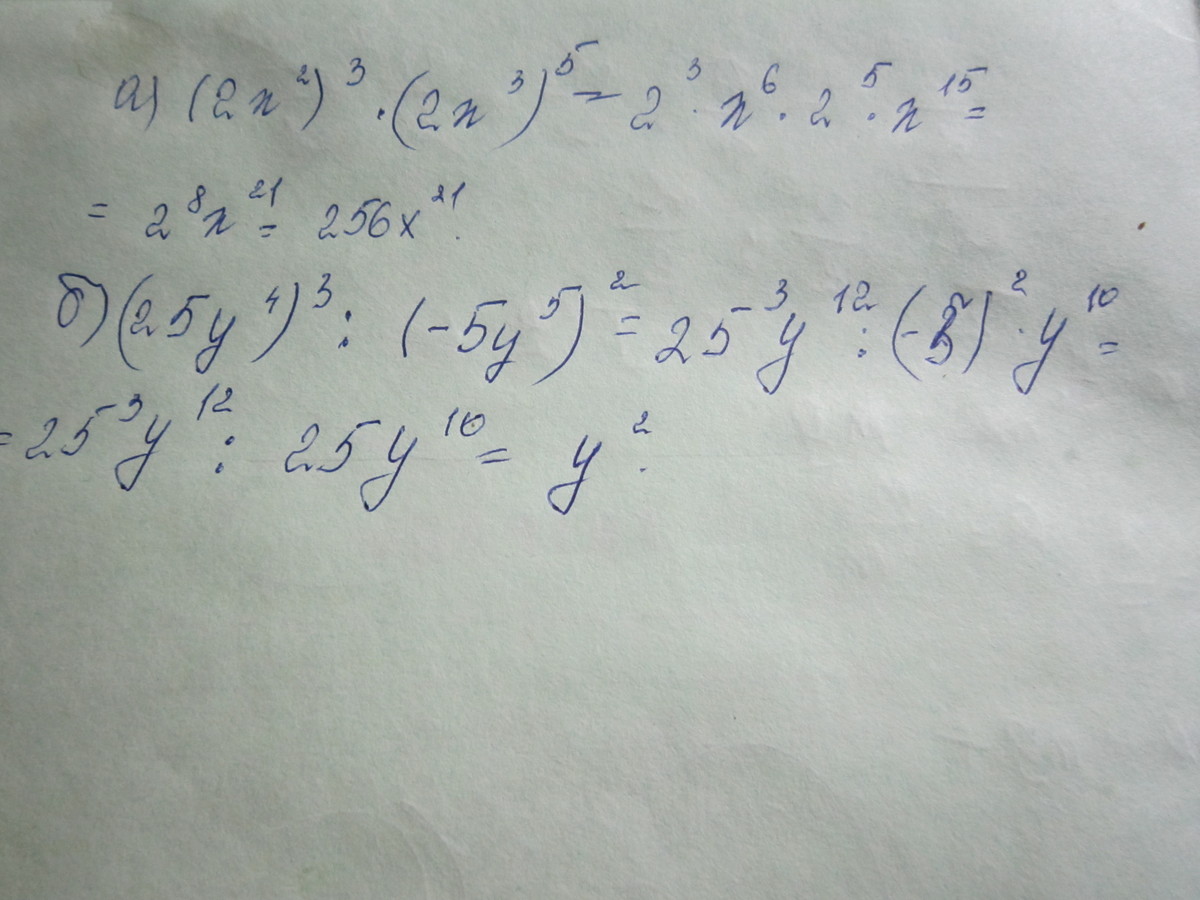 а) (2x²)³ · (2x³)⁵ = 2³ · x⁶ · 2⁵ · x¹⁵ =
= 2⁸x²¹ = 256x²¹.
б) (25y⁴)³ : (-5y⁵)² = 25³y¹² : (-5)² · y¹⁰ =
= 25³y¹² : 25y¹⁰ = y².